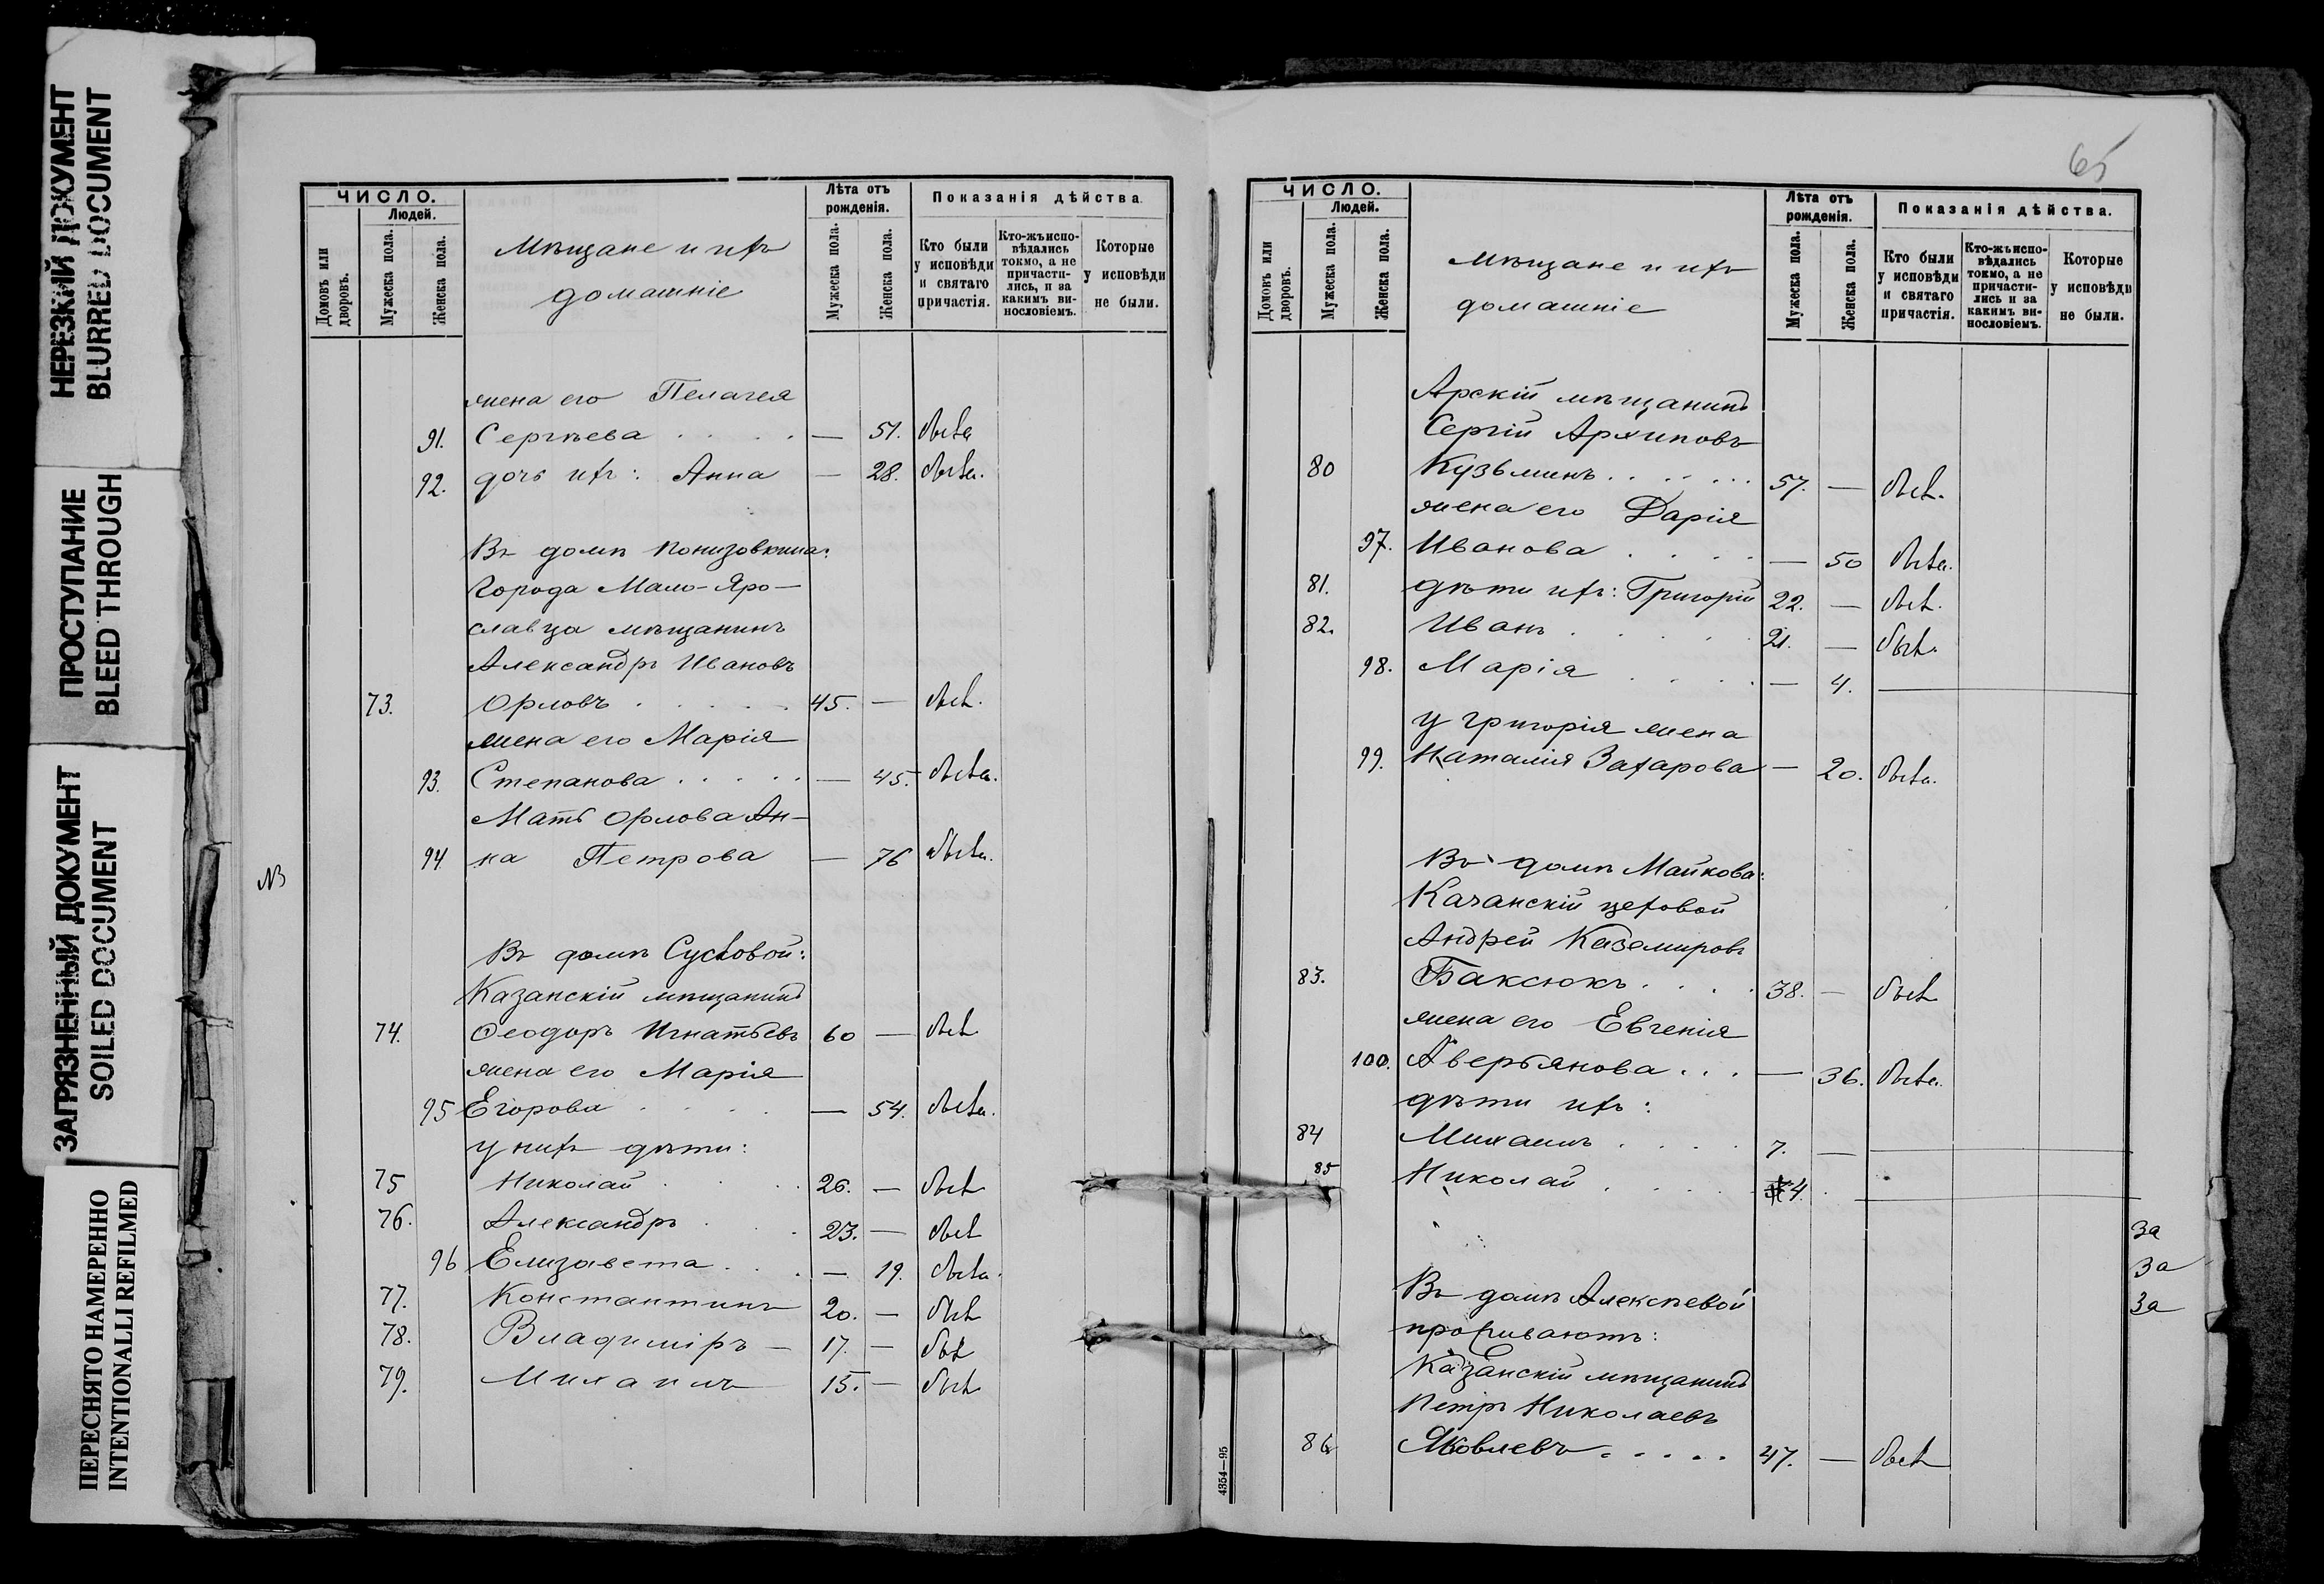 НЕРЕЗКИЙ ДОКУМЕНТ
BLURRED DOCUMENT
ПРОСТУПАНИЕ
BLEED THROUGH
ЗАГРЯЗНЕННЫЙ ДОКУМЕНТ
SOILED DOCUMENT
ПЕРЕСНЯТО НАМЕРЕННО
INTENTIONALLI REFILMED
ЧИСЛО.
Людей.
Домовъ или дворовъ.
Мужеска пола.
Женска пола.
Мѣщане и ихъ
домашніе
Лѣта отъ рожденія.
Мужеска пола.
Женска пола.
Показанія дѣйства.
Кто были у исповѣди и святаго причастія.
Кто-жъ испо-вѣдались токмо, а не причасти-лись, и за какимъ ви-нословіемъ.
Которые у исповѣди не были.
жена его Пелагея
91. Сергѣева — 51. была
92. дочь ихъ: Анна — 28. была.
Въ домѣ Понизовкина:
Города Мало-Яро-
славца мѣщанинъ
Александръ Ивановъ
73. Орловъ 45. — былъ.
жена его Марія
93. Степанова — 45. была.
Мать Орлова Ан-
94 на Петрова — 76 была.
№
Въ домѣ Сусловой:
Казанскій мѣщанинъ
74. Ѳеодоръ Игнатьевъ 60 — былъ
жена его Марія
95 Егорова — 54. была.
у нихъ дѣти:
75 Николай 26. — былъ
76. Александръ 23. — былъ
96 Елизавета — 19. была.
77. Константинъ 20. — былъ
78. Владиміръ — 17. — былъ
79. Михаилъ 15. — былъ
65
ЧИСЛО.
Людей.
Домовъ или дворовъ.
Мужеска пола.
Женска пола.
Мѣщане и ихъ
домашніе
Лѣта отъ рожденія.
Мужеска пола.
Женска пола.
Показанія дѣйства.
Кто были у исповѣди и святаго причастія.
Кто-жъ испо-вѣдались токмо, а не причасти-лись и за какимъ ви-нословіемъ.
Которые у исповѣди не были.
Арскій мѣщанинъ
Сергій Архиповъ
80 Кузьминъ 57. — былъ.
жена его Дарія
97. Иванова — 50 была.
81. дѣти ихъ: Григорій 22. — былъ.
82. Иванъ 21. — былъ.
98. Марія — 4.
у Григорія жена
99. Наталія Захарова — 20. была.
Въ домѣ Майкова:
Казанскій цеховой
Андрей Каземировъ
83. Баксюкъ 38. — былъ
жена его Евгенія
100. Аверьянова — 36. была.
дѣти ихъ:
84 Михаилъ 7. —
85 Николай 4.
За
За
За
Въ домѣ Алексѣевой
проживаютъ:
Казанскій мѣщанинъ
Петръ Николаевъ
86 Яковлевъ 47. — былъ
4354—95